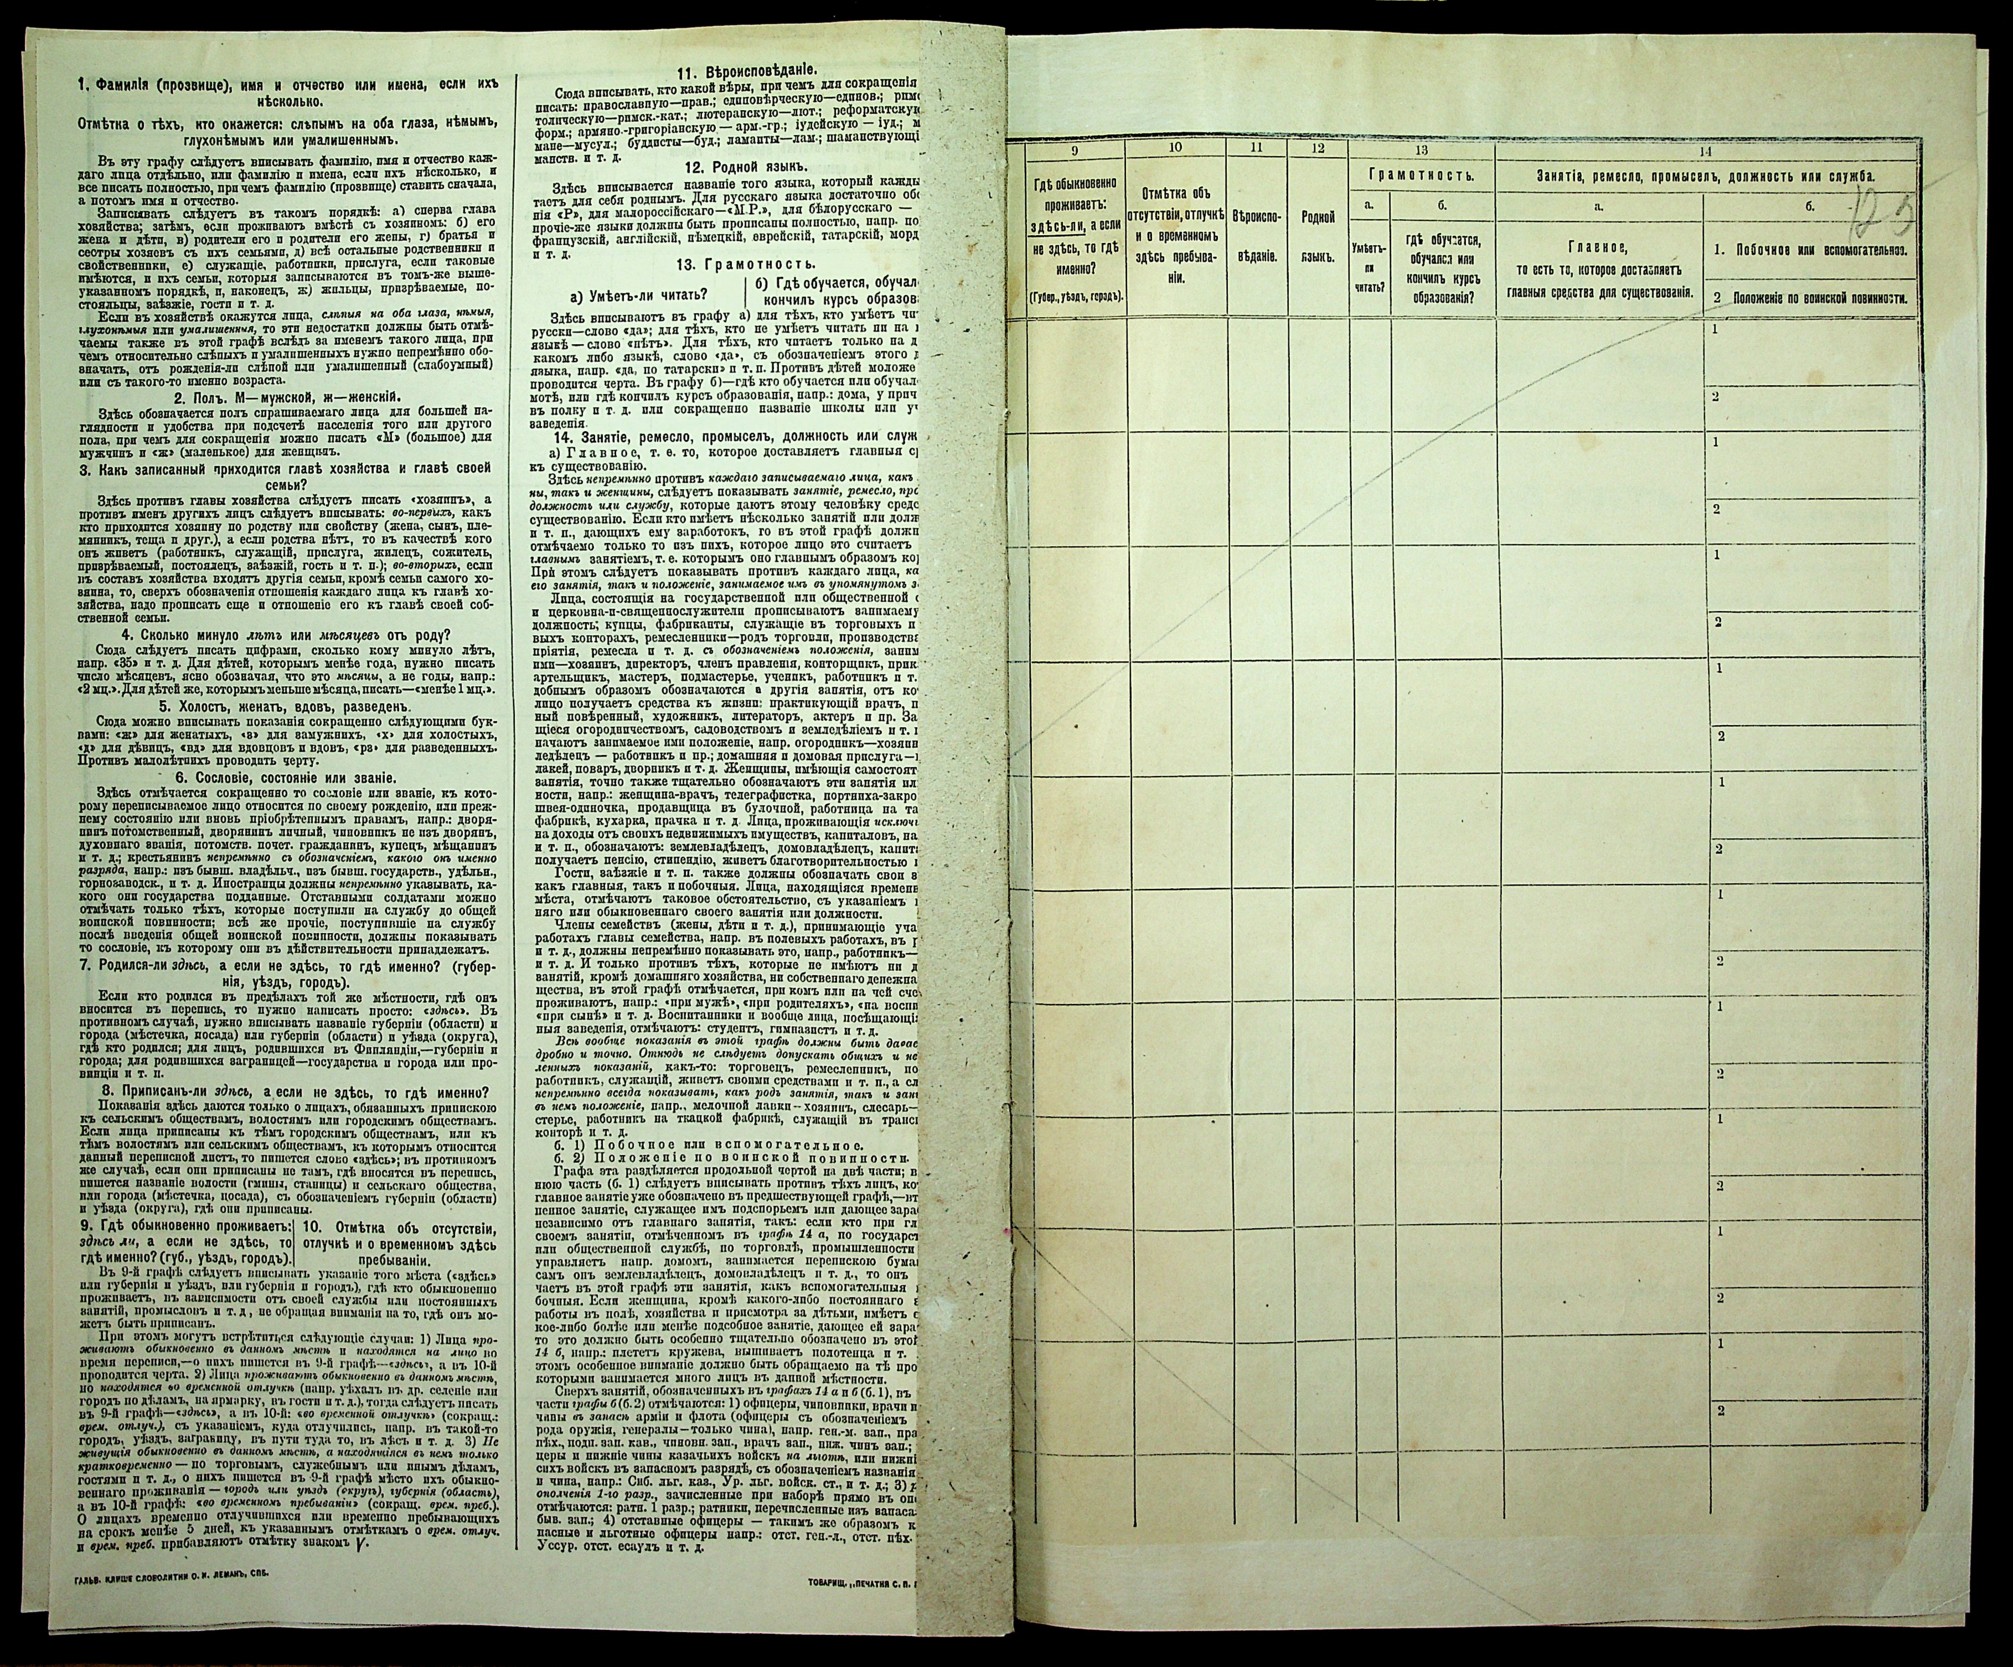 1. Фамилія (прозвище), имя и отчество или имена, если ихъ
нѣсколько.
Отмѣтка о тѣхъ, кто окажется: слѣпымъ на оба глаза, нѣмымъ,
глухонѣмымъ или умалишеннымъ.
Въ эту графу слѣдуетъ вписывать фамилію, имя и отчество каж-
даго лица отдѣльно, или фамилію и имена, если ихъ нѣсколько, и
все писать полностью, при чемъ фамилію (прозвище) ставить сначала,
а потомъ имя и отчество.
Записывать слѣдуетъ въ такомъ порядкѣ: а) сперва глава
хозяйства; затѣмъ, если проживаютъ вмѣстѣ съ хозяиномъ: б) его
жена и дѣти, в) родители его и родители его жены, г) братья и
сестры хозяевъ съ ихъ семьями, д) всѣ остальные родственники и
свойственники, е) служащіе, работники, прислуга, если таковые
имѣются, и ихъ семьи, которыя записываются въ томъ-же выше-
указанномъ порядкѣ, и, наконецъ, ж) жильцы, призрѣваемые, по-
стояльцы, заѣзжіе, гости и т. д.
Если въ хозяйствѣ окажутся лица, слѣпыя на оба глаза, нѣмыя,
глухонѣмыя или умалишенныя, то эти недостатки должны быть отмѣ-
чаемы также въ этой графѣ вслѣдъ за именемъ такого лица, при
чемъ относительно слѣпыхъ и умалишенныхъ нужно непремѣнно обо-
значать, отъ рожденія-ли слѣпой или умалишенный (слабоумный)
или съ такого-то именно возраста.
2. Полъ. М—мужской, ж—женскій.
Здѣсь обозначается полъ спрашиваемаго лица для большей на-
глядности и удобства при подсчетѣ населенія того или другого
пола, при чемъ для сокращенія можно писать «М» (большое) для
мужчинъ и «ж» (маленькое) для женщинъ.
3. Какъ записанный приходится главѣ хозяйства и главѣ своей
семьи?
Здѣсь противъ главы хозяйства слѣдуетъ писать «хозяинъ», а
противъ именъ другихъ лицъ слѣдуетъ вписывать: во-первыхъ, какъ
кто приходится хозяину по родству или свойству (жена, сынъ, пле-
мянникъ, теща и друг.), а если родства нѣтъ, то въ качествѣ кого
онъ живетъ (работникъ, служащій, прислуга, жилецъ, сожитель,
призрѣваемый, постоялецъ, заѣзжій, гость и т. п.); во-вторыхъ, если
въ составъ хозяйства входятъ другія семьи, кромѣ семьи самого хо-
зяина, то, сверхъ обозначенія отношенія каждаго лица къ главѣ хо-
зяйства, надо прописать еще и отношеніе его къ главѣ своей соб-
ственной семьи.
4. Сколько минуло лѣтъ или мѣсяцевъ отъ роду?
Сюда слѣдуетъ писать цифрами, сколько кому минуло лѣтъ,
напр. «35» и т. д. Для дѣтей, которымъ менѣе года, нужно писать
число мѣсяцевъ, ясно обозначая, что это мѣсяцы, а не годы, напр.:
«2 мц.». Для дѣтей же, которымъ меньше мѣсяца, писать—«менѣе 1 мц.».
5. Холостъ, женатъ, вдовъ, разведенъ.
Сюда можно вписывать показанія сокращенно слѣдующими бук-
вами: «ж» для женатыхъ, «з» для замужнихъ, «х» для холостыхъ,
«д» для дѣвицъ, «вд» для вдовцовъ и вдовъ, «рз» для разведенныхъ.
Противъ малолѣтнихъ проводить черту.
6. Сословіе, состояніе или званіе.
Здѣсь отмѣчается сокращенно то сословіе или званіе, къ кото-
рому переписываемое лицо относится по своему рожденію, или преж-
нему состоянію или вновь пріобрѣтеннымъ правамъ, напр.: дворя-
нинъ потомственный, дворянинъ личный, чиновникъ не изъ дворянъ,
духовнаго званія, потомств. почет. гражданинъ, купецъ, мѣщанинъ
и т. д.; крестьянинъ непремѣнно съ обозначеніемъ, какого онъ именно
разряда, напр.: изъ бывш. владѣльч., изъ бывш. государств., удѣльн.,
горнозаводск., и т. д. Иностранцы должны непремѣнно указывать, ка-
кого они государства подданные. Отставными солдатами можно
отмѣчать только тѣхъ, которые поступили на службу до общей
воинской повинности; всѣ же прочіе, поступившіе на службу
послѣ введенія общей воинской повинности, должны показывать
то сословіе, къ которому они въ дѣйствительности принадлежатъ.
7. Родился-ли здѣсь, а если не здѣсь, то гдѣ именно? (губер-
нія, уѣздъ, городъ).
Если кто родился въ предѣлахъ той же мѣстности, гдѣ онъ
вносится въ перепись, то нужно написать просто: «здѣсь». Въ
противномъ случаѣ, нужно вписывать названіе губерніи (области) и
города (мѣстечка, посада) или губерніи (области) и уѣзда (округа),
гдѣ кто родился; для лицъ, родившихся въ Финляндіи,—губерніи и
города; для родившихся заграницей—государства и города или про-
винціи и т. п.
8. Приписанъ-ли здѣсь, а если не здѣсь, то гдѣ именно?
Показанія здѣсь даются только о лицахъ, обязанныхъ припискою
къ сельскимъ обществамъ, волостямъ или городскимъ обществамъ.
Если лица приписаны къ тѣмъ городскимъ обществамъ, или къ
тѣмъ волостямъ или сельскимъ обществамъ, къ которымъ относится
данный переписной листъ, то пишется слово «здѣсь»; въ противномъ
же случаѣ, если они приписаны не тамъ, гдѣ вносятся въ перепись,
пишется названіе волости (гмины, станицы) и сельскаго общества,
или города (мѣстечка, посада), съ обозначеніемъ губерніи (области)
и уѣзда (округа), гдѣ они приписаны.
9. Гдѣ обыкновенно проживаетъ:
здѣсь ли, а если не здѣсь, то
гдѣ именно? (губ., уѣздъ, городъ).
10. Отмѣтка объ отсутствіи,
отлучкѣ и о временномъ здѣсь
пребываніи.
Въ 9-й графѣ слѣдуетъ вписывать указаніе того мѣста («здѣсь»
или губернія и уѣздъ, или губернія и городъ), гдѣ кто обыкновенно
проживаетъ, въ зависимости отъ своей службы или постоянныхъ
занятій, промысловъ и т. д, не обращая вниманія на то, гдѣ онъ мо-
жетъ быть приписанъ.
При этомъ могутъ встрѣтиться слѣдующіе случаи: 1) Лица про-
живаютъ обыкновенно въ данномъ мѣстѣ и находятся на лицо во
время переписи,—о нихъ пишется въ 9-й графѣ—«здѣсь», а въ 10-й
проводится черта. 2) Лица проживаютъ обыкновенно въ данномъ мѣстѣ,
но находятся во временной отлучкѣ (напр. уѣхалъ въ др. селеніе или
городъ по дѣламъ, на ярмарку, въ гости и т. д.), тогда слѣдуетъ писать
въ 9-й графѣ—«здѣсь», а въ 10-й: «во временной отлучкѣ» (сокращ.:
врем. отлуч.), съ указаніемъ, куда отлучились, напр. въ такой-то
городъ, уѣздъ, заграницу, въ пути туда то, въ лѣсъ и т. д. 3) Не
живущія обыкновенно въ данномъ мѣстѣ, а находящіяся въ немъ только
кратковременно — по торговымъ, служебнымъ или инымъ дѣламъ,
гостями и т. д., о нихъ пишется въ 9-й графѣ мѣсто ихъ обыкно-
веннаго проживанія — городъ или уѣздъ (округъ), губернія (область),
а въ 10-й графѣ: «во временномъ пребываніи» (сокращ. врем. преб.).
О лицахъ временно отлучившихся или временно пребывающихъ
на срокъ менѣе 5 дней, къ указаннымъ отмѣткамъ о врем. отлуч.
и врем. преб. прибавляютъ отмѣтку знакомъ V.
ГАЛЬВ. КЛИШЕ СЛОВОЛИТНИ О. И. ЛЕМАНЪ, СПБ.
11. Вѣроисповѣданіе.
Сюда вписывать, кто какой вѣры, при чемъ для сокращенія
писать: православную—прав.; единовѣрческую—единов.; римс
толическую—римск.-кат.; лютеранскую—лют.; реформатскую
форм.; армяно.-григоріанскую — арм.-гр.; іудейскую — іуд.; м
мане—мусул.; буддисты—буд.; ламаиты—лам.; шаманствующі
манств. и т. д.
12. Родной языкъ.
Здѣсь вписывается названіе того языка, который кажды
таетъ для себя роднымъ. Для русскаго языка достаточно обо
нія «Р», для малороссійскаго—«М.Р.», для бѣлорусскаго —
прочіе-же языки должны быть прописаны полностью, напр. по
французскій, англійскій, нѣмецкій, еврейскій, татарскій, морд
и т. д.
13. Грамотность.
а) Умѣетъ-ли читать?
б) Гдѣ обучается, обучал
кончилъ курсъ образов
Здѣсь вписываютъ въ графу а) для тѣхъ, кто умѣетъ чит
русски—слово «да»; для тѣхъ, кто не умѣетъ читать ни на
языкѣ — слово «нѣтъ». Для тѣхъ, кто читаетъ только на д
какомъ либо языкѣ, слово «да», съ обозначеніемъ этого
языка, напр. «да, по татарски» и т. п. Противъ дѣтей моложе
проводится черта. Въ графу б)—гдѣ кто обучается или обучал
мотѣ, или гдѣ кончилъ курсъ образованія, напр.: дома, у прич
въ полку и т. д. или сокращенно названіе школы или уч
заведенія.
14. Занятіе, ремесло, промыселъ, должность или служ
а) Главное, т. е. то, которое доставляетъ главныя с
къ существованію.
Здѣсь непремѣнно противъ каждаго записываемаго лица, какъ
ны, такъ и женщины, слѣдуетъ показывать занятіе, ремесло, про
должность или службу, которые даютъ этому человѣку средс
существованію. Если кто имѣетъ нѣсколько занятій или долж
и т. п., дающихъ ему заработокъ, то въ этой графѣ должн
отмѣчаемо только то изъ нихъ, которое лицо это считаетъ
главнымъ занятіемъ, т. е. которымъ оно главнымъ образомъ ко
При этомъ слѣдуетъ показывать противъ каждаго лица, ка
его занятія, такъ и положеніе, занимаемое имъ въ упомянутомъ з
Лица, состоящія на государственной или общественной
и церковна-и-священнослужители прописываютъ занимаему
должность; купцы, фабриканты, служащіе въ торговыхъ и
выхъ конторахъ, ремесленники—родъ торговли, производства
пріятія, ремесла и т. д. съ обозначеніемъ положенія, заним
ими—хозяинъ, директоръ, членъ правленія, конторщикъ, прик
артельщикъ, мастеръ, подмастерье, ученикъ, работникъ и т.
добнымъ образомъ обозначаются и другія занятія, отъ ко
лицо получаетъ средства къ жизни: практикующій врачъ, п
ный повѣренный, художникъ, литераторъ, актеръ и пр. За
щіеся огородничествомъ, садоводствомъ и земледѣліемъ и т.
начаютъ занимаемое ими положеніе, напр. огородникъ—хозяин
ледѣлецъ — работникъ и пр.; домашняя и домовая прислуга—
лакей, поваръ, дворникъ и т. д. Женщины, имѣющія самостоят
занятія, точно также тщательно обозначаютъ эти занятія ил
ности, напр.: женщина-врачъ, телеграфистка, портниха-закро
швея-одиночка, продавщица въ булочной, работница на та
фабрикѣ, кухарка, прачка и т. д. Лица, проживающія исключ
на доходы отъ своихъ недвижимыхъ имуществъ, капиталовъ, на
и т. п., обозначаютъ: землевладѣлецъ, домовладѣлецъ, капит
получаетъ пенсію, стипендію, живетъ благотворительностью
Гости, заѣзжіе и т. п. также должны обозначать свои з
какъ главныя, такъ и побочныя. Лица, находящіяся времен
мѣста, отмѣчаютъ таковое обстоятельство, съ указаніемъ
няго или обыкновеннаго своего занятія или должности.
Члены семействъ (жены, дѣти и т. д.), принимающіе уча
работахъ главы семейства, напр. въ полевыхъ работахъ, въ
и т. д., должны непремѣнно показывать это, напр., работникъ—
и т. д. И только противъ тѣхъ, которые не имѣютъ ни д
занятій, кромѣ домашняго хозяйства, ни собственнаго денежна
щества, въ этой графѣ отмѣчается, при комъ или на чей сче
проживаютъ, напр.: «при мужѣ», «при родителяхъ», «на воспи
«при сынѣ» и т. д. Воспитанники и вообще лица, посѣщающі
ныя заведенія, отмѣчаютъ: студентъ, гимназистъ и т. д.
Всѣ вообще показанія въ этой графѣ должны быть давае
дробно и точно. Отнюдь не слѣдуетъ допускать общихъ и не
ленныхъ показаній, какъ-то: торговецъ, ремесленникъ, по
работникъ, служащій, живетъ своими средствами и т. п., а сл
непремѣнно всегда показывать, какъ родъ занятія, такъ и зан
въ немъ положеніе, напр., мелочной лавки--хозяинъ, слесарь—
стерье, работникъ на ткацкой фабрикѣ, служащій въ транс
конторѣ и т. д.
б. 1) Побочное или вспомогательное.
б. 2) Положеніе по воинской повинности.
Графа эта раздѣляется продольной чертой на двѣ части; в
нюю часть (б. 1) слѣдуетъ вписывать противъ тѣхъ лицъ, ко
главное занятіе уже обозначено въ предшествующей графѣ,—вт
пенное занятіе, служащее имъ подспорьемъ или дающее зара
независимо отъ главнаго занятія, такъ: если кто при гл
своемъ занятіи, отмѣченномъ въ графѣ 14 а, по государст
или общественной службѣ, по торговлѣ, промышленности
управляетъ напр. домомъ, занимается перепискою бума
самъ онъ землевладѣлецъ, домовладѣлецъ и т. д., то онъ
чаетъ въ этой графѣ эти занятія, какъ вспомогательныя
бочныя. Если женщина, кромѣ какого-либо постояннаго
работы въ полѣ, хозяйства и присмотра за дѣтьми, имѣетъ
кое-либо болѣе или менѣе подсобное занятіе, дающее ей зара
то это должно быть особенно тщательно обозначено въ этой
14 б, напр.: плететъ кружева, вышиваетъ полотенца и т.
этомъ особенное вниманіе должно быть обращаемо на тѣ про
которыми занимается много лицъ въ данной мѣстности.
Сверхъ занятій, обозначенныхъ въ графахъ 14 а и б (б. 1), въ
части графы б (б. 2) отмѣчаются: 1) офицеры, чиновники, врачи и
чины въ запасѣ арміи и флота (офицеры съ обозначеніемъ
рода оружія, генералы—только чина), напр. ген.-м. зап., пра
пѣх., подп. зап. кав., чиновн. зап., врачъ зап., ниж. чинъ зап.;
церы и нижніе чины казачьихъ войскъ на льготѣ, или нижні
сихъ войскъ въ запасномъ разрядѣ, съ обозначеніемъ названія
и чина, напр.: Сиб. льг. каз., Ур. льг. войск. ст., и т. д.; 3) р
ополченія 1-го разр., зачисленные при наборѣ прямо въ опо
отмѣчаются: ратн. 1 разр.; ратники, перечисленные изъ запаса
быв. зап.; 4) отставные офицеры — такимъ же образомъ к
пасные и льготные офицеры напр.: отст. ген.-л., отст. пѣх.
Уссур. отст. есаулъ и т. д.
ТОВАРИЩ. „ПЕЧАТНЯ С. П.
9 10 11 12 13 14
Гдѣ обыкновенно
проживаетъ:
здѣсь-ли, а если
не здѣсь, то гдѣ
именно?
(Губер., уѣздъ, городъ).
Отмѣтка объ
отсутствіи, отлучкѣ
и о временномъ
здѣсь пребыва-
ніи.
Вѣроиспо-
вѣданіе.
Родной
языкъ.
Грамотность.
а.
Умѣетъ-
ли
читать?
б.
гдѣ обучается,
обучался или
кончилъ курсъ
образованія?
Занятіе, ремесло, промыселъ, должность или служба.
а.
Главное,
то есть то, которое доставляетъ
главныя средства для существованія.
б.
125
1. Побочное или вспомогательное.
2 Положеніе по воинской повинности.
1
2
1
2
1
2
1
2
1
2
1
2
1
2
1
2
1
2
1
2